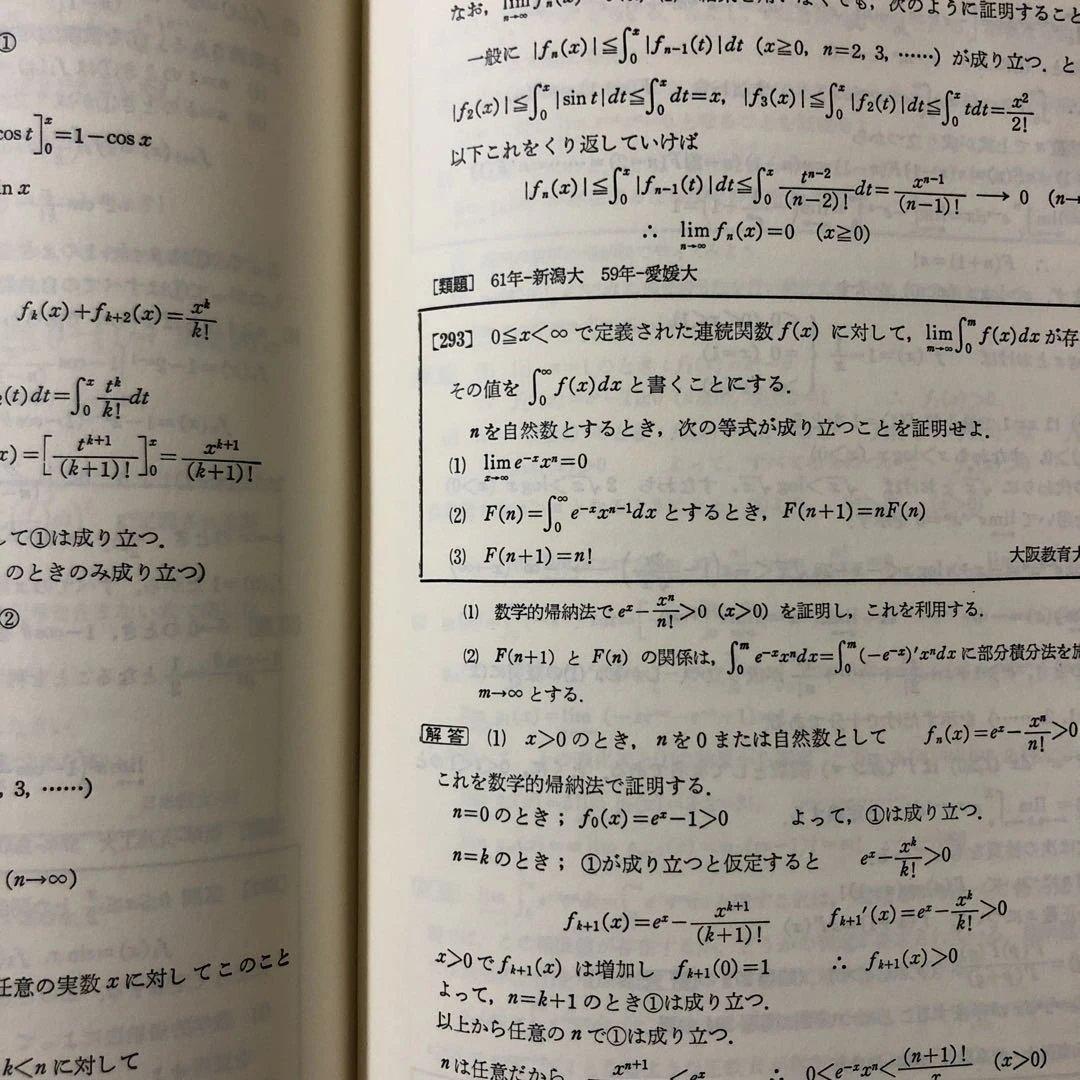 ①
cos t]₀ˣ=1−cos x
in x
fₖ(x)+fₖ₊₂(x)=xᵏ/k!
₂(t)dt=∫₀ˣ tᵏ/k! dt
x)=[tᵏ⁺¹/(k+1)!]₀ˣ=xᵏ⁺¹/(k+1)!
して①は成り立つ.
のときのみ成り立つ)
②
, 3, ……)
(n→∞)
任意の実数 x に対してこのこと
k<n に対して
なお, lim_{n→∞} fₙ(x)
次のように証明すること
一般に |fₙ(x)|≦∫₀ˣ|fₙ₋₁(t)|dt (x≧0, n=2, 3, ……) が成り立つ. と
|f₂(x)|≦∫₀ˣ|sin t|dt≦∫₀ˣdt=x, |f₃(x)|≦∫₀ˣ|f₂(t)|dt≦∫₀ˣtdt=x²/2!
以下これをくり返していけば
|fₙ(x)|≦∫₀ˣ|fₙ₋₁(t)|dt≦∫₀ˣ tⁿ⁻²/(n−2)! dt=xⁿ⁻¹/(n−1)! → 0 (n→
∴ lim_{n→∞} fₙ(x)=0 (x≧0)
[類題] 61年-新潟大 59年-愛媛大
[293] 0≦x<∞ で定義された連続関数 f(x) に対して, lim_{m→∞}∫₀ᵐ f(x)dx が存
その値を ∫₀^∞ f(x)dx と書くことにする.
n を自然数とするとき, 次の等式が成り立つことを証明せよ.
(1) lim_{x→∞} e⁻ˣxⁿ=0
(2) F(n)=∫₀^∞ e⁻ˣxⁿ⁻¹dx とするとき, F(n+1)=nF(n)
(3) F(n+1)=n! 大阪教育大
(1) 数学的帰納法で eˣ−xⁿ/n!>0 (x>0) を証明し, これを利用する.
(2) F(n+1) と F(n) の関係は, ∫₀ᵐ e⁻ˣxⁿdx=∫₀ᵐ(−e⁻ˣ)′xⁿdx に部分積分法を施
m→∞ とする.
解答 (1) x>0 のとき, n を 0 または自然数として fₙ(x)=eˣ−xⁿ/n!>0
これを数学的帰納法で証明する.
n=0 のとき; f₀(x)=eˣ−1>0 よって, ①は成り立つ.
n=k のとき; ①が成り立つと仮定すると eˣ−xᵏ/k!>0
fₖ₊₁(x)=eˣ−xᵏ⁺¹/(k+1)! fₖ₊₁′(x)=eˣ−xᵏ/k!>0
x>0 で fₖ₊₁(x) は増加し fₖ₊₁(0)=1 ∴ fₖ₊₁(x)>0
よって, n=k+1 のとき①は成り立つ.
以上から任意の n で①は成り立つ.
n は任意だから xⁿ⁺¹ <eˣ ∴ 0<e⁻ˣxⁿ<(n+1)!/x (x>0)